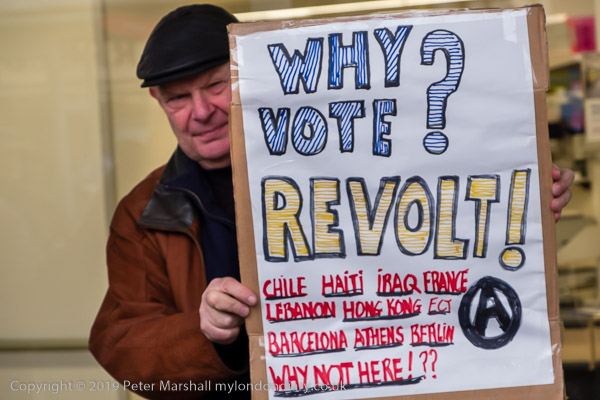 WHY ?
VOTE
REVOLT!
CHILE HAITI IRAQ FRANCE
LEBANON HONG KONG ECT
BARCELONA ATHENS BERLIN
WHY NOT HERE!??
A
Copyright © 2019 Peter Marshall mylondondiary.co.uk